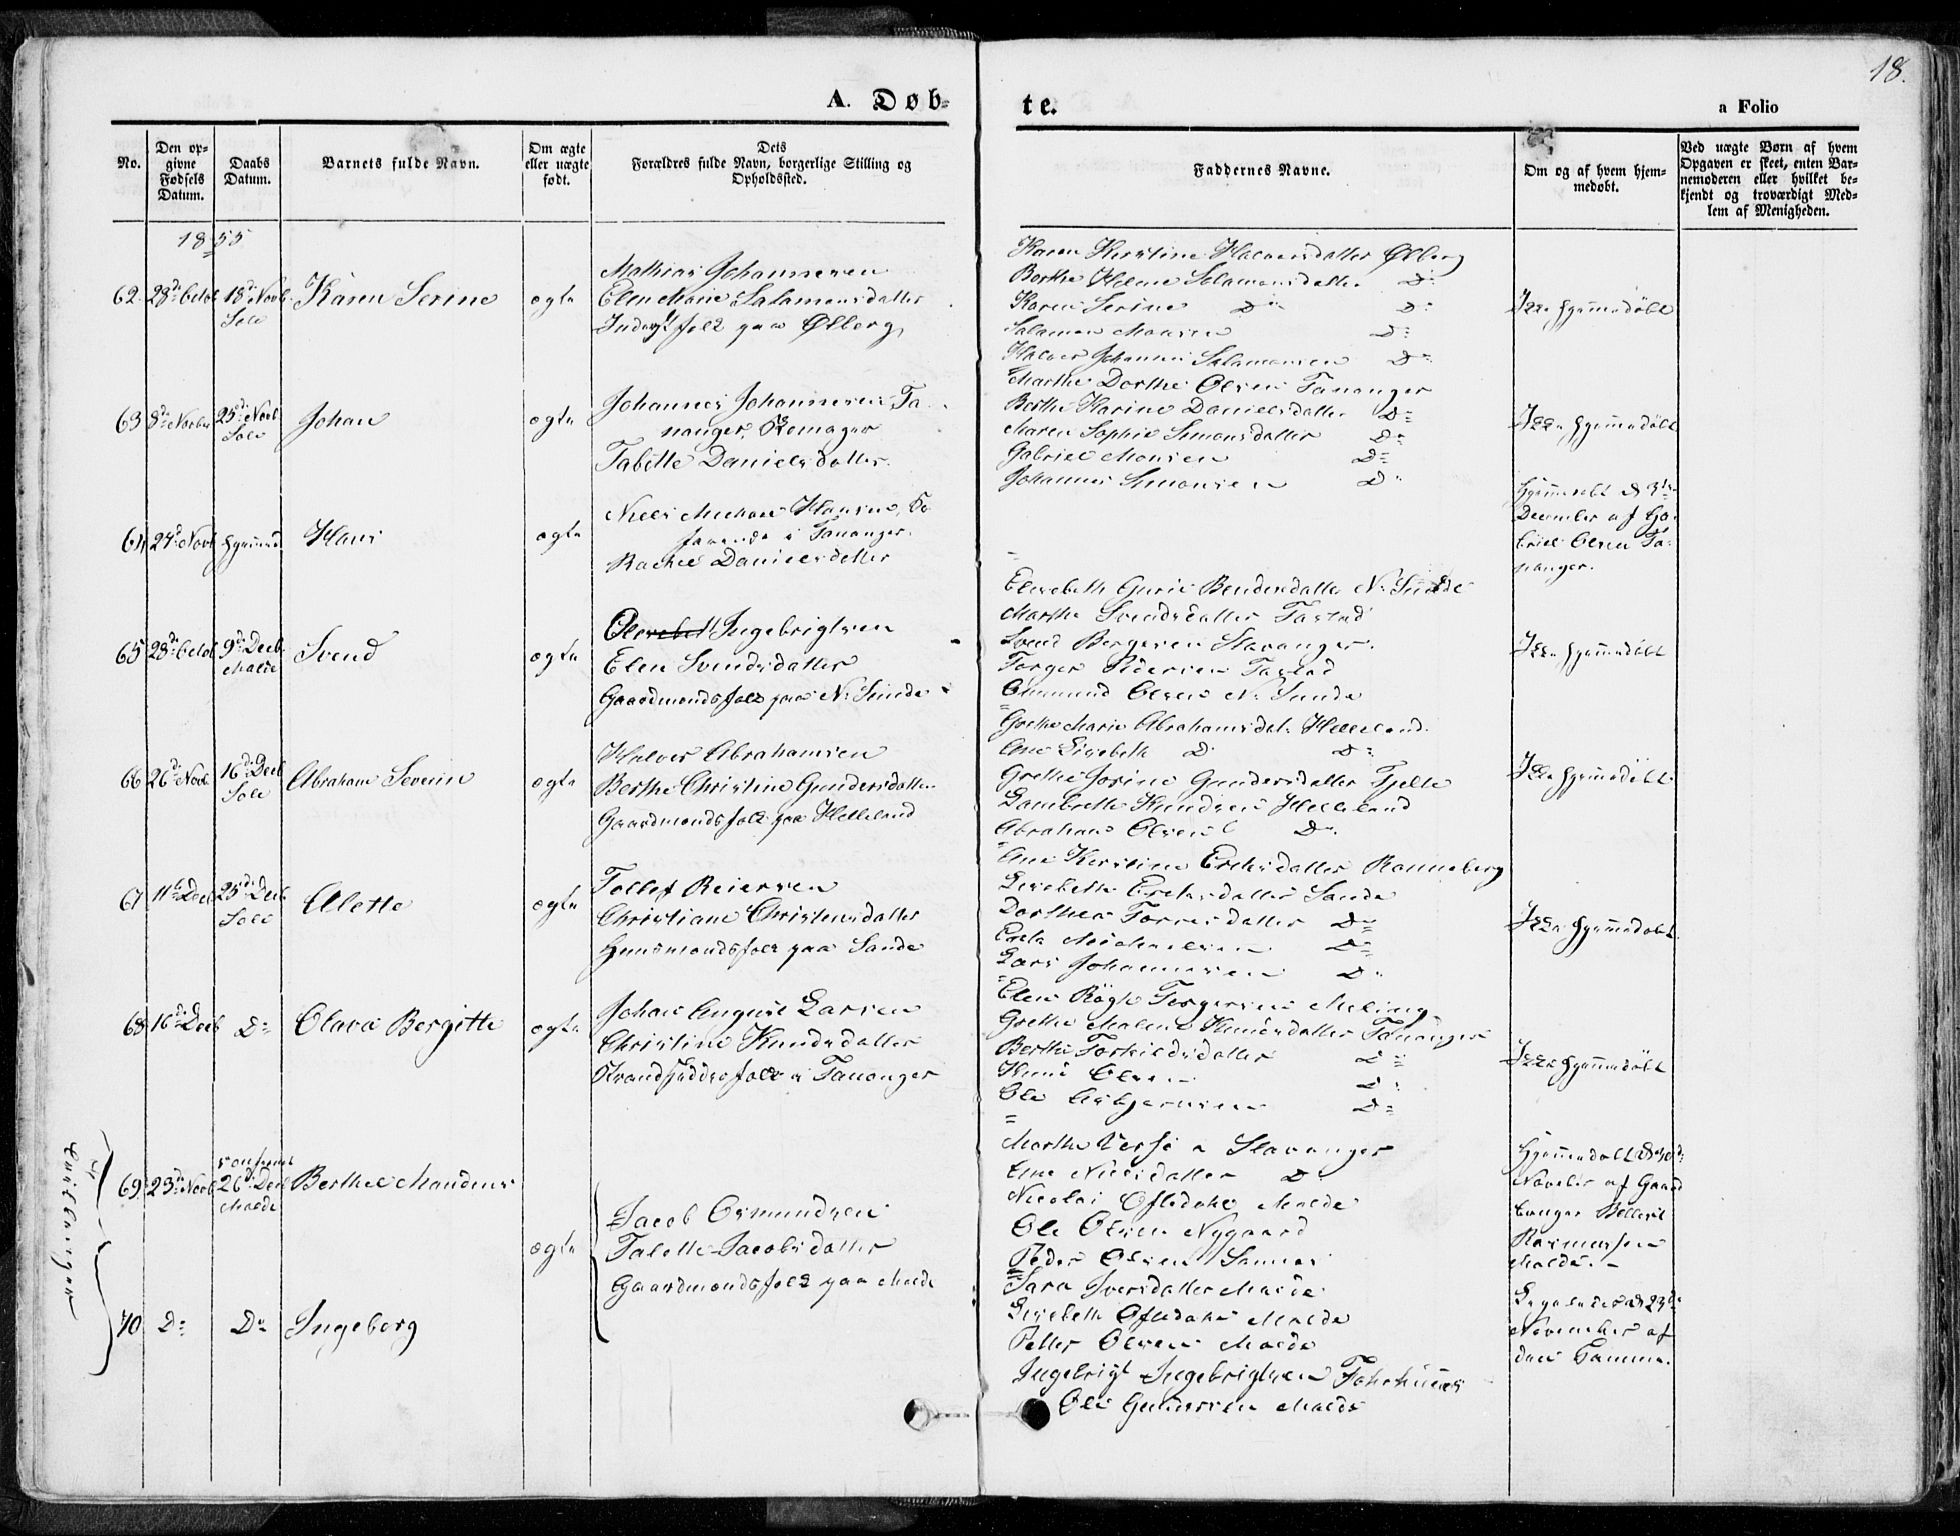 18.
A. Døb-
te.
a Folio
No.
Den op-
givne
Fødsels
Datum.
Daabs
Datum.
Barnets fulde Navn.
Om ægte
eller uægte
født.
Dets
Forældres fulde Navn, borgerlige Stilling og
Opholdssted.
Faddernes Navne.
Om og af hvem hjem-
medøbt.
Ved uægte Børn af hvem
Opgaven er skeet, enten Bar-
nemoderen eller hvilket be-
kjendt og troværdigt Med-
lem af Menigheden.
1855
62. 28de Octob 18de Novb. Karen Serine ægte
Sole
Mathias Johannesen
Elen Marie Salamonsdatter
folk paa Ølberg
Karen Kirstine Halvorsdatter Ølberg
Berthe Helene Salamonsdatter Do
Karen Serine Do Do
Salamon Monsen Do
Halvor Johannes Salamonsen Do
Ikke hjemmedøbt
63 8de Novbr 25de Novb Johan ægte
Sole
Johannes Johannesen Ta-
nanger,
Tabitte Danielsdatter.
Marthe Dorthe Olsen Tananger
Berthe Karine Danielsdatter Do
Maren Sophie Simonsdatter Do
Gabriel Monsen Do
Johannes Simonsen Do
Ikke hjemmedøbt
64 24de Novb hjemmed Hans ægte
Niels Michael Hansen,
farende i Tananger.
Rachel Danielsdatter
Hjemmedøbt d 3die
December af Ga-
briel Olsen Ta-
nanger.
65 28de Octob 9de Decb. Svend ægte
Malde
Ingebrigtsen
Elen Svendsdatter
Gaardmandsfolk paa N. Sunde
Elisebeth Gurie Bendsdatter N. Sunde
Marthe Svendsdatter Tastad
Svend Børgesen Stavanger.
Torger Pedersen Tastad
Osmund Olsen N. Sunde
Ikke hjemmedøbt
66 26de Novb 16de Decb Abraham Severin ægte
Sole
Halvor Abrahamsen
Berthe Christine Gundersdatter
Gaardmandsfolk paa Helleland
Grethe Marie Abrahamsdat. Helleland.
Ane Lisebeth Do Do
Grethe Josine Gundersdatter Tjelte
Lambrette Knudsen Helleland
Abraham Olsen Do
Ikke hjemmedøbt
67 11te Decb 25de Decb. Alette ægte
Sole
Tollef Reiersen
Christiane Christensdatter
Huusmandsfolk paa Sande
Ane Kirstine Eriksdatter Ranneberg
Lisebeth Eriksdatter Sande
Dorthea Torresdatter Do
Erik Michaelsen Do
Lars Johannesen Do
Ikke hjemmedøbt.
68 16de Decb Do Olava Bergitte ægte
Johan August Larsen
Christine Knudsdatter
Strandsiddersfolk i Tananger
Elen Røgh Torgersen Meling.
Grethe Malene Knudsdatter Tananger
Berthe Torkildsdatter Do
Knud Olsen Do
Ole Asbjørnsen Do
Ikke hjemmedøbt
69. 23de Novb 26de Decb Berthe
Malde
Jacob Osmundsen
Talette Jacobsdatter
Gaardmandsfolk paa Malde
ægte
Marthe Stavanger
Ane Nielsdatter Do
Nicolai Oftedahl Malde
Ole Olsen Nygaard
Peder Olsen Sømme
Hjemmedøbt
November af Gaard
bruger
Rasmussen
Malde.
70 Do Do Ingeborg
Sara Iversdatter Malde
Lisebeth Oftedahl Malde
Petter Olsen Malde
Ingebrigt Ingebrigtsen
Ole Gundersen Malde
23de
November af
den Samme.
Tvillinger